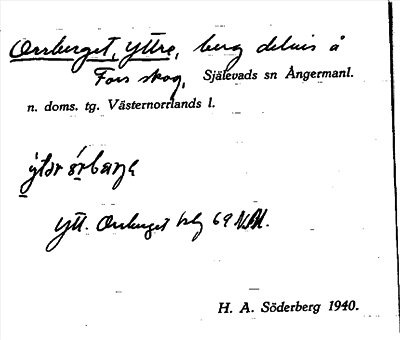 Orrberget, yttre, berg delvis å
Fors skog, Själevads sn Ångermanl.
n. doms. tg. Västernorrlands l.
ýtər
Ytt. Orrberget blg 69
H. A. Söderberg 1940.